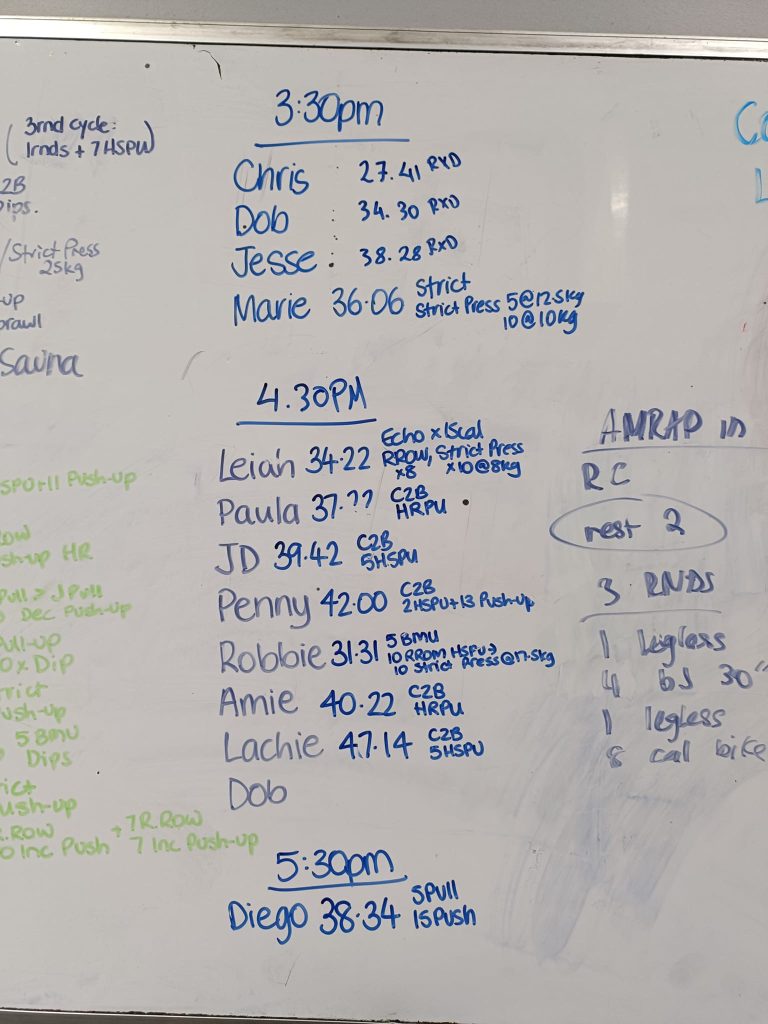 3rnd cycle:
1rnds + 7 HSPU
C2B
Dips.
/Strict Press
25kg
-up
Sauna
Push-up
Row
Push-up HR
Dec Push-up
Pull-up
x Dip
Push-up
5 BMU
Dips
Push-up
R.Row + 7 R.ROW
Inc Push 7 Inc Push-up
3:30pm
Chris : 27.41 RXD
Dob : 34.30 RXD
Jesse : 38.28 RxD
Marie 36.06 Strict
Strict Press 5@12.5kg
10@10kg
4.30PM
Leiah 34.22 Echo x 15cal
RROW, Strict Press
x8 x10@8kg
Paula 37.?? C2B
HRPU
JD 39.42 C2B
5HSPU
Penny 42.00 C2B
2HSPU+13 Push-up
Robbie 31.31 5 BMU
10 RROM HSPU →
10 Strict Press @17.5kg
Amie 40.22 C2B
HRPU
Lachie 47.14 C2B
5HSPU
Dob
5:30pm
Diego 38.34 5Pull
15Push
AMRAP in
RC
rest 2
3 RNDS
1 legless
4 bj 30"
1 legless
8 cal bike